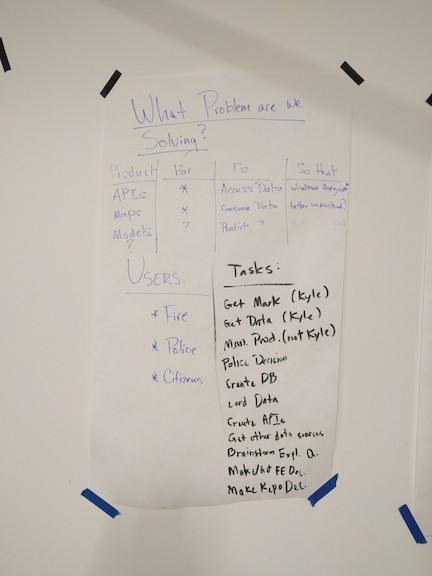 What Problem are we
Solving?
Product For To So that
APIs * Access Data whatever
Maps * Consume Data better understand?
Models ? Predict ?
?
USERS:
* Fire
* Police
* Citizens
Tasks:
Get Mark (Kyle)
Get Data (Kyle)
Min. Prod. (not Kyle)
Police Decision
Create DB
Load Data
Create APIs
Get other data sources
Brainstorm Expl. Q.
Make/not FE Dec.
Make Repo Dec.